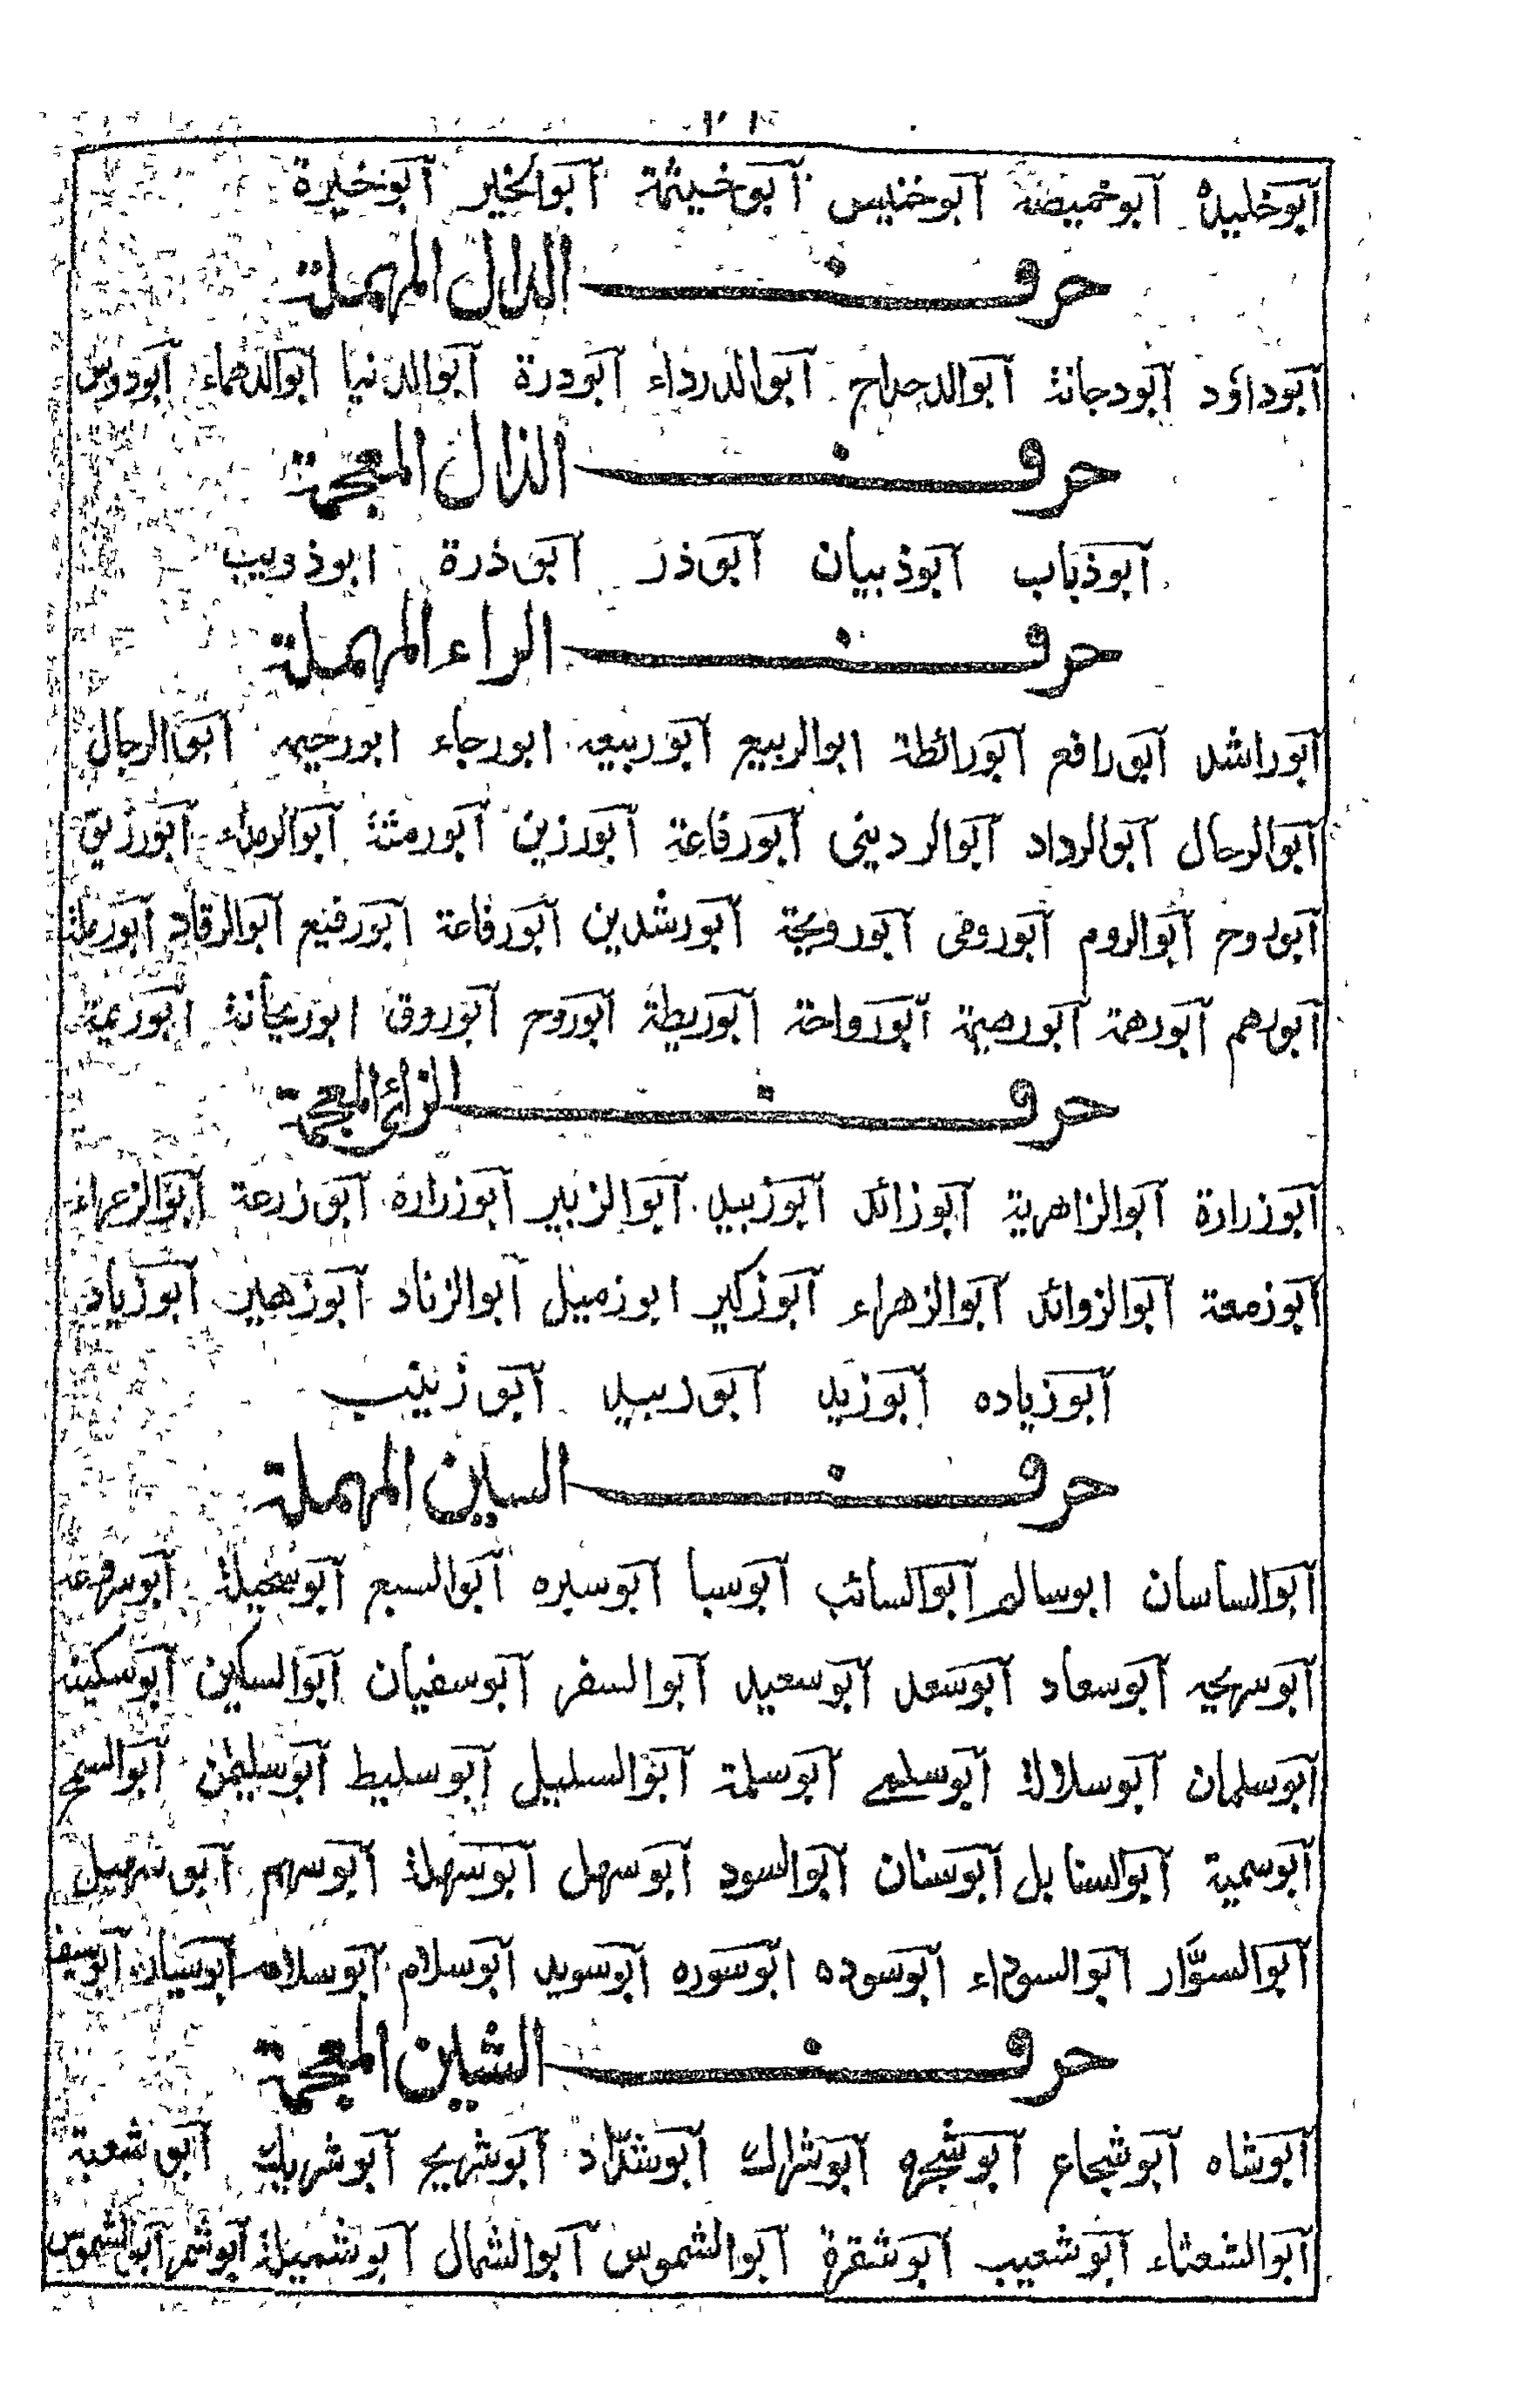 ابوخليدة ابوخميصة ابوخنيس ابوخيثمة ابوالخير ابوخيرة
حرف الدال المهملة
ابوداؤد ابودجانة ابوالدحداح ابوالدرداء ابودرة ابوالدنيا ابوالدهماء ابودوس
حرف الذال المعجمة
ابوذباب ابوذبيان ابوذر ابوذرة ابوذويب
حرف الراء المهملة
ابوراشد ابورافع ابورائطة ابوالربيع ابوربيعه ابورجاء ابورحيمه ابوالرجال
ابوالرحال ابوالرداد ابوالرديني ابورفاعة ابورزين ابورمثة ابوالرمداء ابورزيق
ابوروح ابوالروم ابورومى ابورويحة ابورشدين ابورفاعة ابورفيع ابوالرقاد ابورملة
ابورهم ابورهمة ابورهيمة ابورواحة ابوريطة ابوروح ابوروق ابوريحانة ابوريمة
حرف الزائ المعجمة
ابوزرارة ابوالزاهرية ابوزائد ابوزبيد ابوالزبير ابوزرارة ابوزرعة ابوالزعراء
ابوزمعة ابوالزوائد ابوالزهراء ابوزكير ابوزميل ابوالزناد ابوزهير ابوزياد
ابوزياده ابوزيد ابوزبيد ابوزينب
حرف السين المهملة
ابوالساسان ابوسالم ابوالسائب ابوسبا ابوسبره ابوالسبع ابوسخيلة
ابوسريحه ابوسعاد ابوسعد ابوسعيد ابوالسفر ابوسفيان ابوالسكين ابوسكينه
ابوسلمان ابوسلالة ابوسلمى ابوسلمة ابوالسليل ابوسليط ابوسليمن ابوالسمح
ابوسمية ابوالسنابل ابوسنان ابوالسود ابوسهل ابوسهلة ابوسهم ابوسهيل
ابوالسوَّار ابوالسوداء ابوسوده ابوسوره ابوسويد ابوسلام ابوسلامه ابوسيان ابوسيف
حرف الشين المعجمة
ابوشاه ابوشجاع ابوشجره ابوشراك ابوشدّاد ابوشريح ابوشريك ابوشعبة
ابوالشعثاء ابوشعيب ابوشقرة ابوالشموس ابوالشمال ابوشميلة ابوشمر ابوالشموس